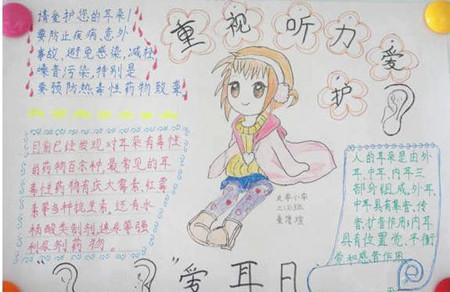 重视听力爱
护
请爱护您的耳朵!
要防止疾病,意外
事故,避免感染,减轻
噪音污染,特别是
要预防热毒性药物致聋
目前已经发现对耳朵有毒性
的药物百余种,最常见的耳
毒性药物有庆大霉素,红霉
素等多种抗生素,还有水
杨酸类制剂,速尿等强
利尿剂药物……
人的耳朵是由外
耳,中耳,内耳三
部分组成,外耳,
中耳具有集音,传
音,扩音作用;内耳
具有位置觉,平衡
觉和感音作用。
"爱耳日